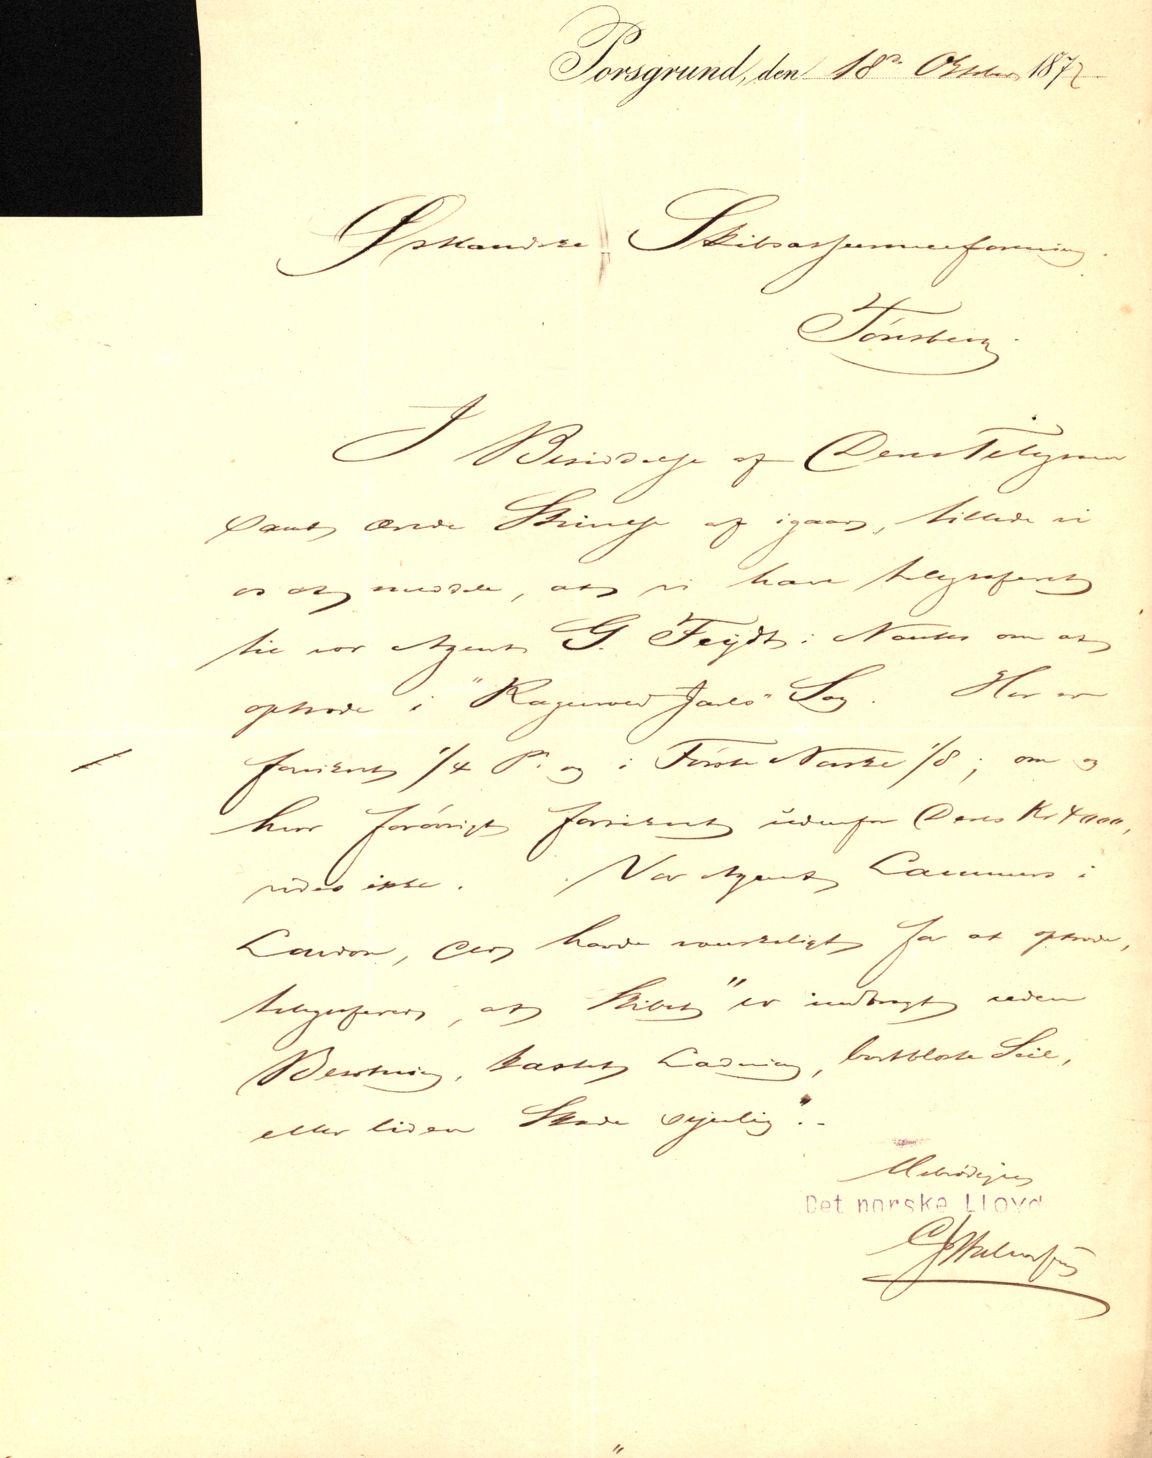 Porsgrund, den 18de Oktober 187
Skibsassuranceforening
Tönsberg.
I Besiddelse af Deres Telegram
samt ærede Skrivelse af igaar, tillade vi
os at meddele, at vi have telegraferet
til vor Agent G. Feydt i Nantes om at
optræde i "Ragnvald Jarls" Sag. Her er
forsikret 1/4 P. og i Förste Norske 1/8; om og
hvor forövrigt forsikret udenfor Deres Kr 4000,
vides ikke. Vor Agent Lammers i
London, der havde vanskeligt for at optræde,
telegraferer, at Skibet "er indbragt uden
Besætning, kastet Ladning, bortblæste Seil,
eller liden Skade synlig".-
Det norske Lloyd